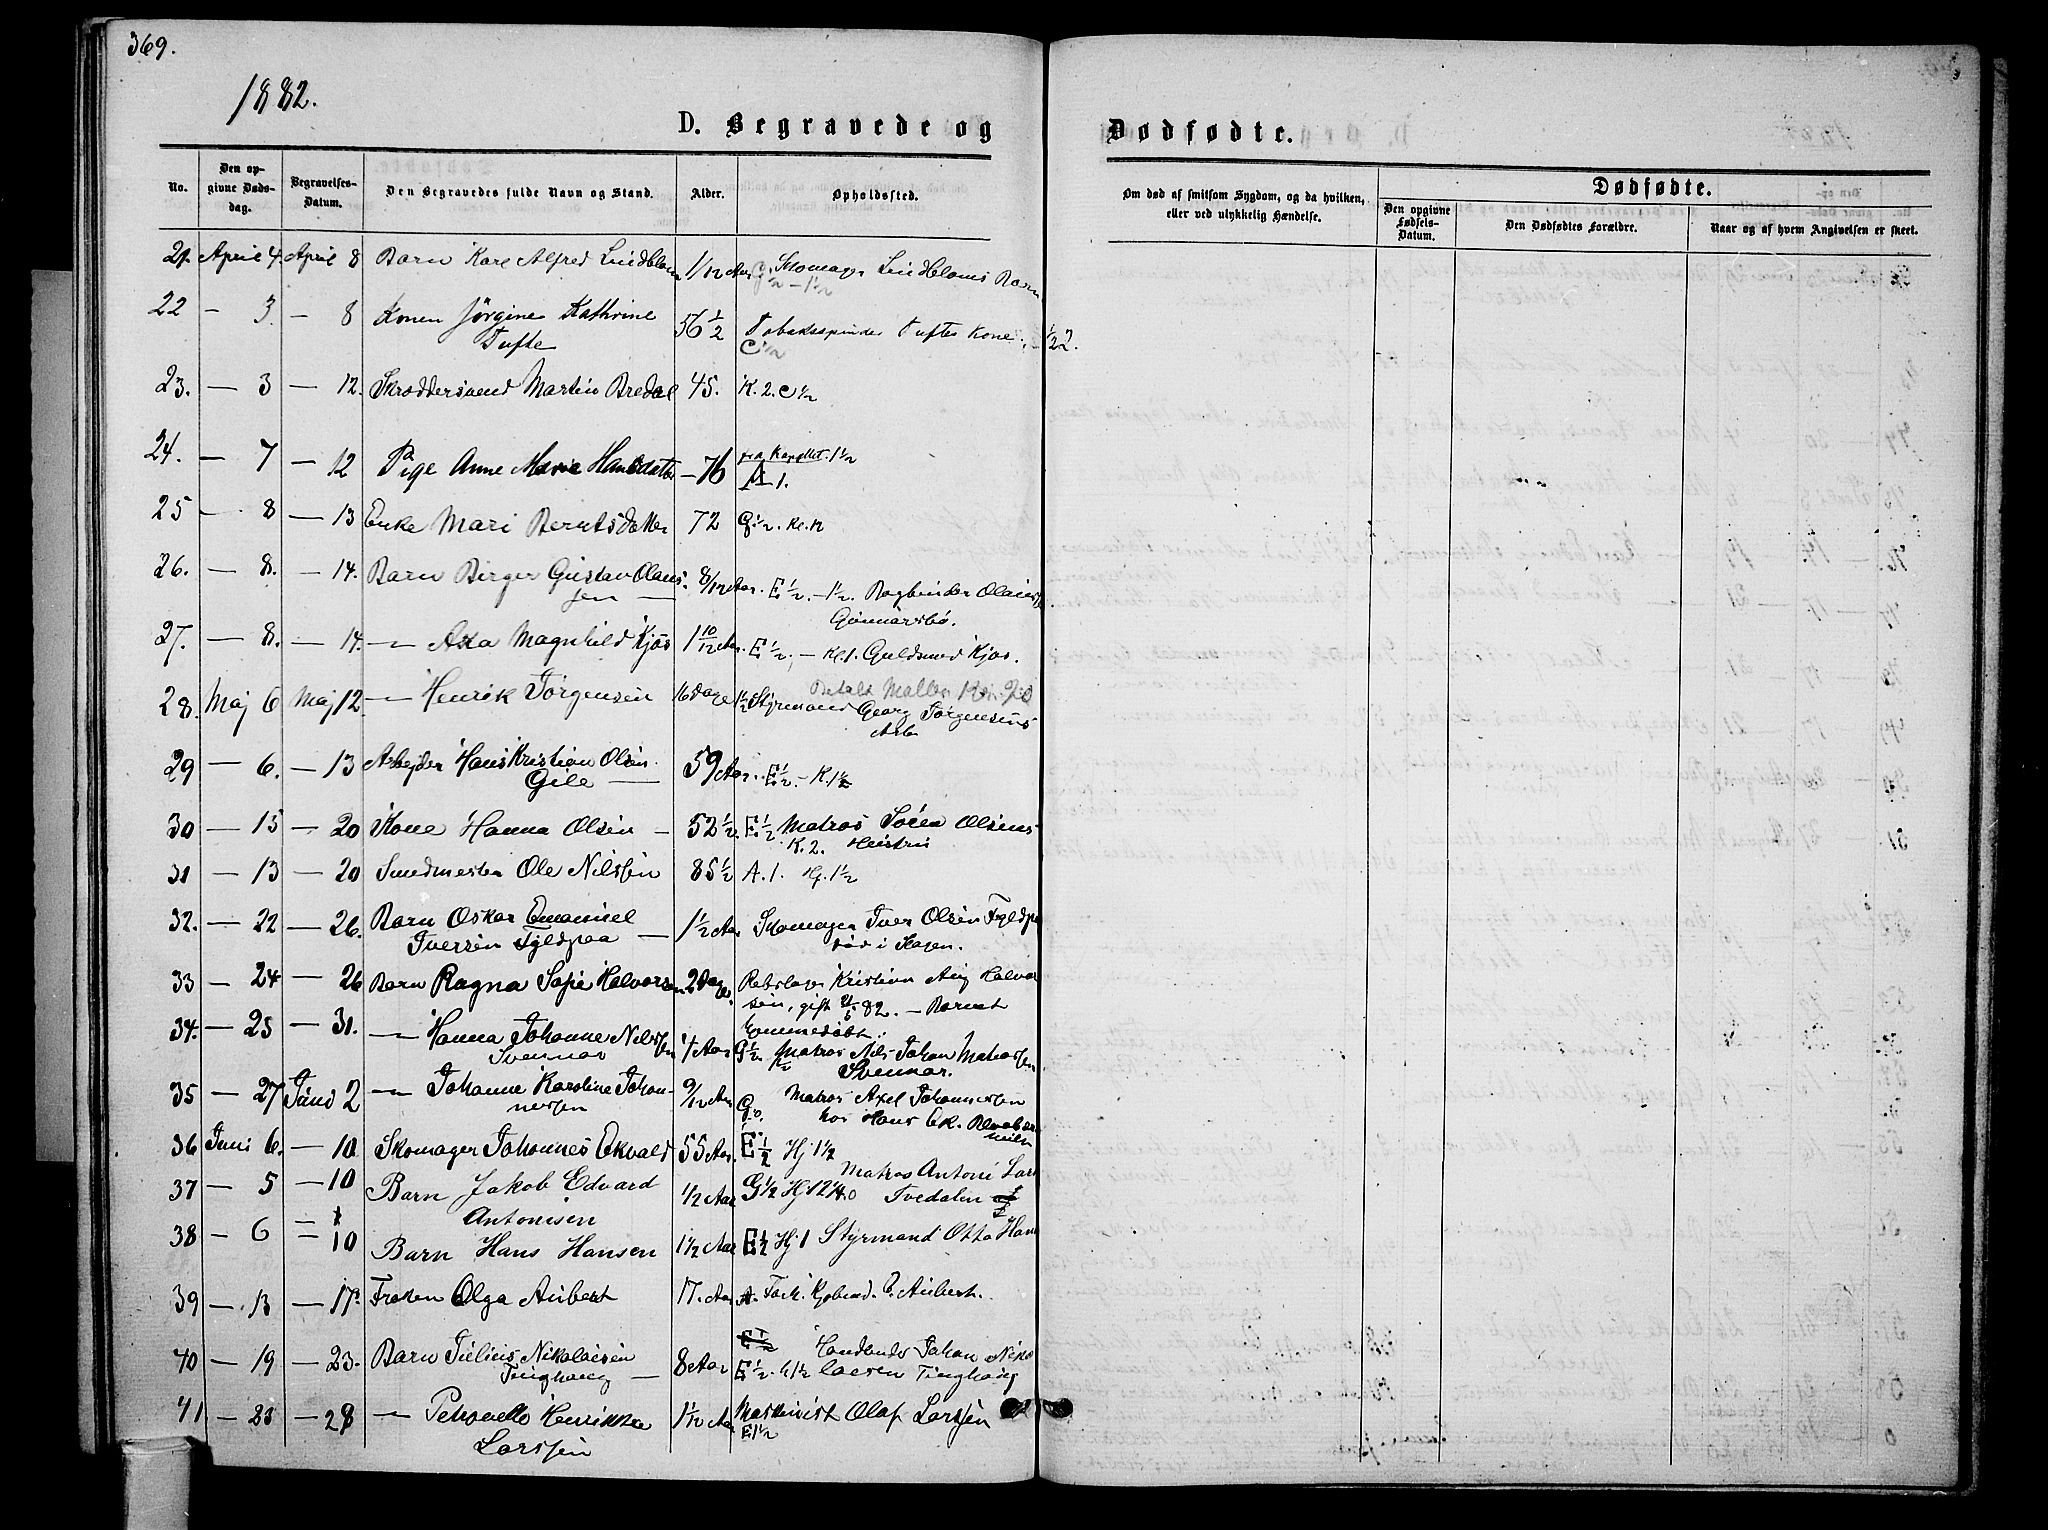 369.
1882.
D. Begravede og Dødfødte.
No.
Den opgivne Dødsdag.
Begravelses-Datum.
Den Begravedes fulde Navn og Stand.
Alder.
Opholdssted.
Om død af smitsom Sygdom, og da hvilken, eller ved ulykkelig Hændelse.
Dødfødte.
Den opgivne Fødsels-Datum.
Den Dødfødtes Forældre.
Naar og af hvem Angivelsen er skeet.
21. April 4. April 8 Barn Karl Alfred Lindblom 1/12 Aar Skomager Lindbloms Barn
22 — 3. — 8 Konen Jørgine Kathrine 56 1/2 Tobaksspinder Tuftes Kone
Tufte C 1/2
23. — 3 — 12. Skræddersvend Martin Bredal 45. K. 2. C 1/2
24. — 7 — 12 Pige Anne Marie Hansdatter — 76 1 1/2
A 1.
25 — 8 — 13 Enke Mari Berntsdatter 72 G 1/2. Kl. 12
26. — 8. — 14. Barn Birger Gustav Olaus- 8/12 Aar. E 1/2. — 1 1/2. Bogbinder
sen — Gunnarsbø.
27. — 8. — 14. — Axa Magnhild Kjøs 1 10/12 Aar. E 1/2. — Kl. 1. Guldsmed Kjøs.
28. Maj 6 Maj 12. — Henrik Jørgensen 16 Dage 1 1/2 Styrmand Georg Jørgensens
29 — 6. — 13 Arbejder Hans Kristian Olsen 59 Aar. E 1/2. — K. 1 1/2
Gile —
30 — 15 — 20 Kone Hanna Olsen — 52 1/2. E 1/2 Matros Søren Olsens
K. 2. Heistri
31 — 13 — 20 Smedmester Ole Nilssen 85 1/2 A. 1. Hj. 1 1/2
32. — 22 — 26. Barn Oskar Emanuel 1 1/2 Aar Skomager Iver Olsen Fyldpaa
Iversen Fyldpaa — død i Skogen.
33 — 24 — 26 Barn Ragna Sofie Halvorsen 2 Dage. Rebslager Kristian Aug Halvor
sen, gift 82. — Barnet
hjemmedøbt.
34. — 25 — 31. — Hanna Johanne Nilssen 4 Aar G 1/2. Matros Nils Johan
Svennar Svennar.
35 — 27 Juni 2 — Johanne Karoline Johan- 9/12 Aar G Matros Axel Johannessen
nessen hos Hans Ek.
36 Juni 6. — 10 Skomager Johannes Ekvald 55 Aar. E 1/2 Hj 1 1/2
37 — 5 — 10 Barn Jakob Edvard 1/2 Aar G 1/2 Hj 12 1/4 Matros Antoni Lar
Antonisen Tvedalen
38 — 6 — 10 Barn Hans Hansen 1 1/2 Aar E 1/2 Hj 1 Styrmand Otto Han
39 — 13 — 17 Frøken Olga Aubert 17. Aar A. Fork. Kjøbmd. Aubert.
40 — 19 — 23. Barn Julius Nikolaisen 8 Aar Handlende Johan Niko
Tinghaug — E 1/2. h 1 1/2 laesen Tinghaug
41 — 23 — 28 — Petronelle Henrikke 1 1/12 Aar Maskinist Olaf Larssen
Larssen E 1 1/2